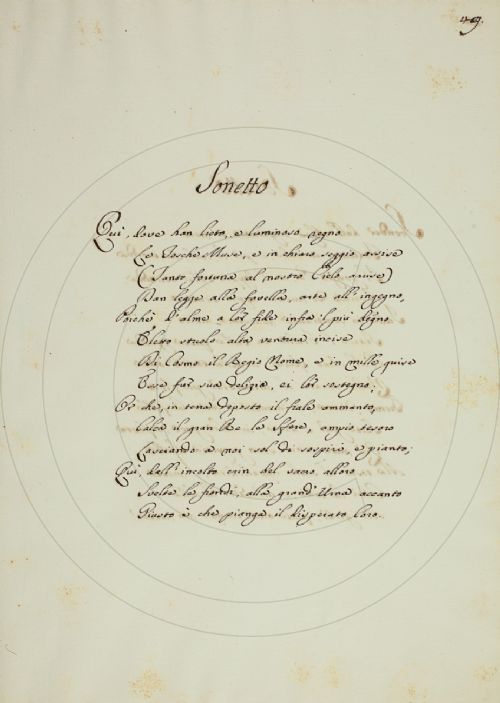 49.
Sonetto
Qui, dove han lieto, e luminoso regno
Le Tosche Muse, e in chiaro seggio assise
(Tanto fortuna al nostro Cielo arrise)
Dan legge alla favella, arte all' ingegno,
Poichè l'alme a lor fide infra 'l più degno
Eletto stuolo alta ventura incise
Di Cosmo il Regio Nome, e in mille guise
Esse fur sua delizia, ei lor sostegno;
Or che, in terra deposto il frale ammanto,
Calca il gran Re le Sfere, ampio tesoro
Lasciando a noi sol di sospiri, e pianto;
Quì, dall' incolto crin del sacro alloro
Svelte le frondi, alla grand' Urna accanto
Giusto è che pianga il disperato Coro.